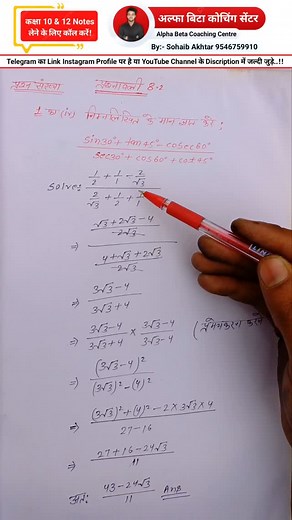 कक्षा 10 & 12 Notes
लेने के लिए कॉल करें!
अल्फा बिटा कोचिंग सेंटर
Alpha Beta Coaching Centre
By:- Sohaib Akhtar 9546759910
Telegram का Link Instagram Profile पर है या YouTube Channel के Discription में जल्दी जुड़े..!!
प्रश्नावली 8.2
(iv) निम्नलिखित के मान ज्ञात करें :
sin30° + tan45° - cosec60° / sec30° + cos60° + cot45°
Solve: 1/2 + 1/1 - 2/√3 / 2/√3 + 1/2 + 1/1
⇒ √3 + 2√3 - 4 / 2√3 / 4 + √3 + 2√3 / 2√3
⇒ 3√3 - 4 / 3√3 + 4
⇒ 3√3 - 4 / 3√3 + 4 × 3√3 - 4 / 3√3 - 4 (
⇒ (3√3 - 4)² / (3√3)² - (4)²
⇒ (3√3)² + (4)² - 2 × 3√3 × 4 / 27 - 16
⇒ 27 + 16 - 24√3 / 11
अतः 43 - 24√3 / 11 Ans